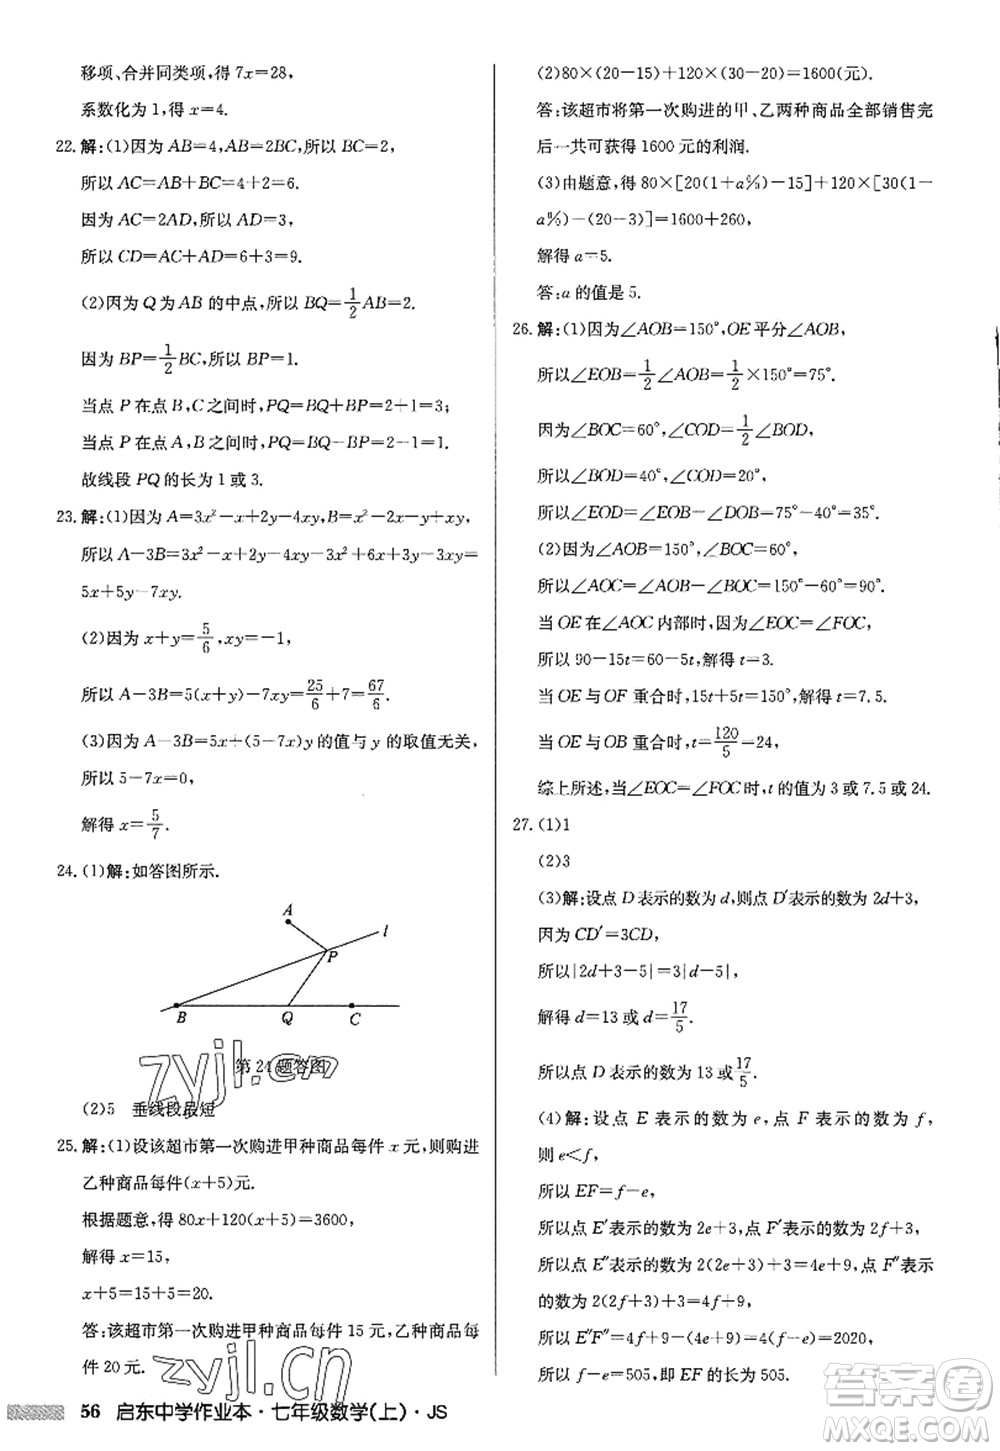 移项、合并同类项，得 7x=28，
系数化为 1，得 x=4.
22. 解:(1)因为 AB=4，AB=2BC，所以 BC=2，
所以 AC=AB+BC=4+2=6.
因为 AC=2AD，所以 AD=3，
所以 CD=AC+AD=6+3=9.
(2)因为 Q 为 AB 的中点，所以 BQ=1/2AB=2.
因为 BP=1/2BC，所以 BP=1.
当点 P 在点 B、C 之间时，PQ=BQ+BP=2+1=3；
当点 P 在点 A、B 之间时，PQ=BQ-BP=2-1=1.
故线段 PQ 的长为 1 或 3.
23. 解:(1)因为 A=3x²-x+2y-4xy，B=x²-2x-y+xy，
所以 A-3B=3x²-x+2y-4xy-3x²+6x+3y-3xy=
5x+5y-7xy.
(2)因为 x+y=5/6，xy=-1，
所以 A-3B=5(x+y)-7xy=25/6+7=67/6.
(3)因为 A-3B=5x+(5-7x)y 的值与 y 的取值无关，
所以 5-7x=0，
解得 x=5/7.
24. (1)解:如答图所示.
A
l
P
B Q C
第 24 题答图
(2)5 垂线段最短
25. 解:(1)设该超市第一次购进甲种商品每件 x 元，则购进
乙种商品每件(x+5)元.
根据题意，得 80x+120(x+5)=3600，
解得 x=15，
x+5=15+5=20.
答:该超市第一次购进甲种商品每件 15 元，乙种商品每
件 20 元.
(2)80×(20-15)+120×(30-20)=1600(元).
答:该超市将第一次购进的甲、乙两种商品全部销售完
后一共可获得 1600 元的利润.
(3)由题意，得 80×[20(1+a%)-15]+120×[30(1-
a%)-(20-3)]=1600+260，
解得 a=5.
答:a 的值是 5.
26. 解:(1)因为∠AOB=150°，OE 平分∠AOB，
所以∠EOB=1/2∠AOB=1/2×150°=75°.
因为∠BOC=60°，∠COD=1/2∠BOD，
所以∠BOD=40°，∠COD=20°.
所以∠EOD=∠EOB-∠DOB=75°-40°=35°.
(2)因为∠AOB=150°，∠BOC=60°，
所以∠AOC=∠AOB-∠BOC=150°-60°=90°.
当 OE 在∠AOC 内部时，因为∠EOC=∠FOC，
所以 90-15t=60-5t，解得 t=3.
当 OE 与 OF 重合时，15t+5t=150°，解得 t=7.5.
当 OE 与 OB 重合时，t=120/5=24，
综上所述，当∠EOC=∠FOC 时，t 的值为 3 或 7.5 或 24.
27. (1)1
(2)3
(3)解:设点 D 表示的数为 d，则点 D′表示的数为 2d+3，
因为 CD′=3CD，
所以|2d+3-5|=3|d-5|，
解得 d=13 或 d=17/5.
所以点 D 表示的数为 13 或17/5.
(4)解:设点 E 表示的数为 e，点 F 表示的数为 f，
则 e<f，
所以 EF=f-e，
所以点 E′表示的数为 2e+3，点 F′表示的数为 2f+3，
所以点 E″表示的数为 2(2e+3)+3=4e+9，点 F″表
示的数为 2(2f+3)+3=4f+9，
所以 E″F″=4f+9-(4e+9)=4(f-e)=2020，
所以 f-e=505，即 EF 的长为 505.
56 启东中学作业本·七年级数学(上)·JS
zyjl.cn
zyjl.cn
答案圈
MXQE.COM